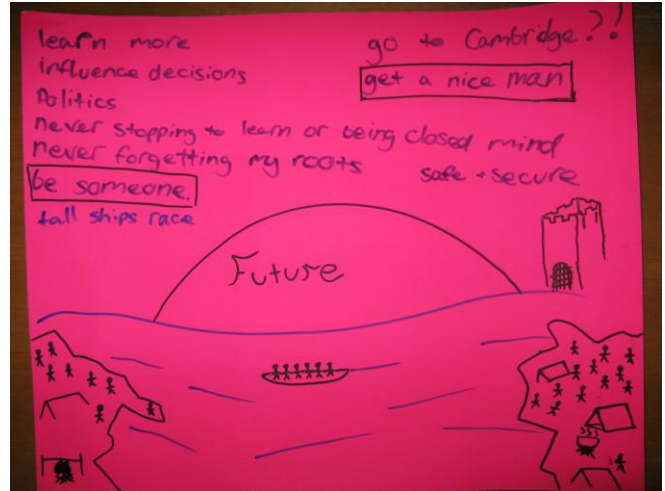 learn more
influence decisions
Politics
never stopping to learn or being closed mind
never forgetting my roots
be someone.
tall ships race
go to Cambridge??
get a nice man
safe + secure
Future